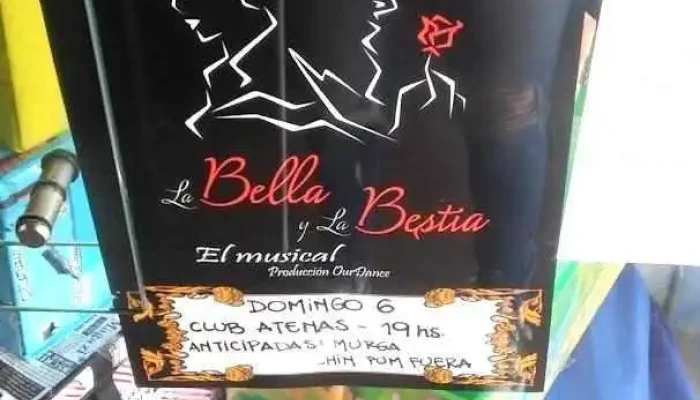 La Bella
y La Bestia
El musical
Producción OurDance
DOMINGO 6
CLUB ATENAS - 19 hs.
ANTICIPADAS: MURGA
CHIN PUM FUERA